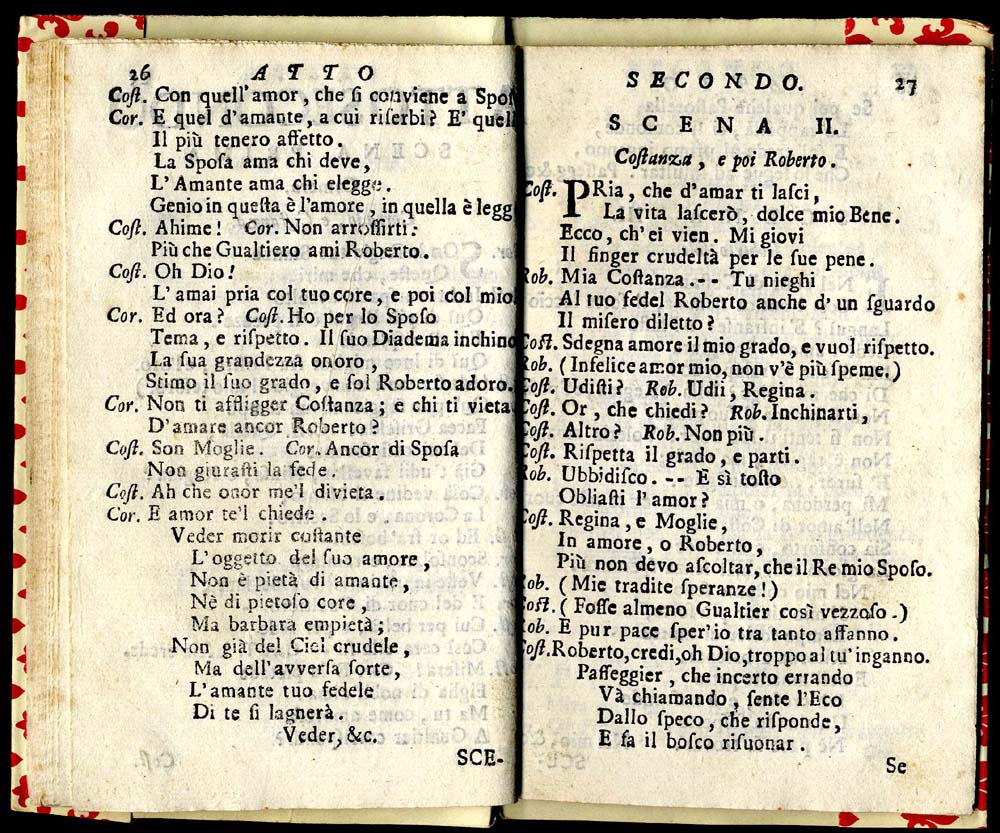 26 ATTO
Coſt. Con quell'amor, che ſi conviene a Spoſ
Cor. E quel d'amante, a cui riſerbi? E' quel
Il più tenero affetto.
La Spoſa ama chi deve,
L'Amante ama chi elegge.
Genio in queſta è l'amore, in quella è legg
Coſt. Ahime! Cor. Non arroſſirti:
Più che Gualtiero ami Roberto.
Coſt. Oh Dio!
L'amai pria col tuo core, e poi col mio.
Cor. Ed ora? Coſt. Ho per lo Spoſo
Tema, e riſpetto. Il ſuo Diadema inchino
La ſua grandezza onoro,
Stimo il ſuo grado, e ſol Roberto adoro.
Cor. Non ti affligger Coſtanza; e chi ti vieta
D'amare ancor Roberto?
Coſt. Son Moglie. Cor. Ancor di Spoſa
Non giuraſti la fede.
Coſt. Ah che onor me'l divieta.
Cor. E amor te'l chiede.
Veder morir coſtante
L'oggetto del ſuo amore,
Non è pietà di amante,
Nè di pietoſo core,
Ma barbara empietà;
Non già del Ciel crudele,
Ma dell'avverſa ſorte,
L'amante tuo fedele
Di te ſi lagnerà.
Veder, &c.
SCE-
SECONDO. 27
SCENA II.
Coſtanza, e poi Roberto.
Coſt. PRia, che d'amar ti laſci,
La vita laſcerò, dolce mio Bene.
Ecco, ch'ei vien. Mi giovi
Il finger crudeltà per le ſue pene.
Rob. Mia Coſtanza. -- Tu nieghi
Al tuo fedel Roberto anche d'un ſguardo
Il miſero diletto?
Coſt. Sdegna amore il mio grado, e vuol riſpetto.
Rob. (Infelice amor mio, non v'è più ſpeme.)
Coſt. Udiſti? Rob. Udii, Regina.
Coſt. Or, che chiedi? Rob. Inchinarti,
Coſt. Altro? Rob. Non più.
Coſt. Riſpetta il grado, e parti.
Rob. Ubbidiſco. -- E sì toſto
Obliaſti l'amor?
Coſt. Regina, e Moglie,
In amore, o Roberto,
Più non devo aſcoltar, che il Re mio Spoſo.
Rob. (Mie tradite ſperanze!)
Coſt. (Foſſe almeno Gualtier così vezzoſo.)
Rob. E pur pace ſper'io tra tanto affanno.
Coſt. Roberto, credi, oh Dio, troppo al tu' inganno.
Paſſeggier, che incerto errando
Và chiamando, ſente l'Eco
Dallo ſpeco, che riſponde,
E fa il boſco riſuonar.
Se